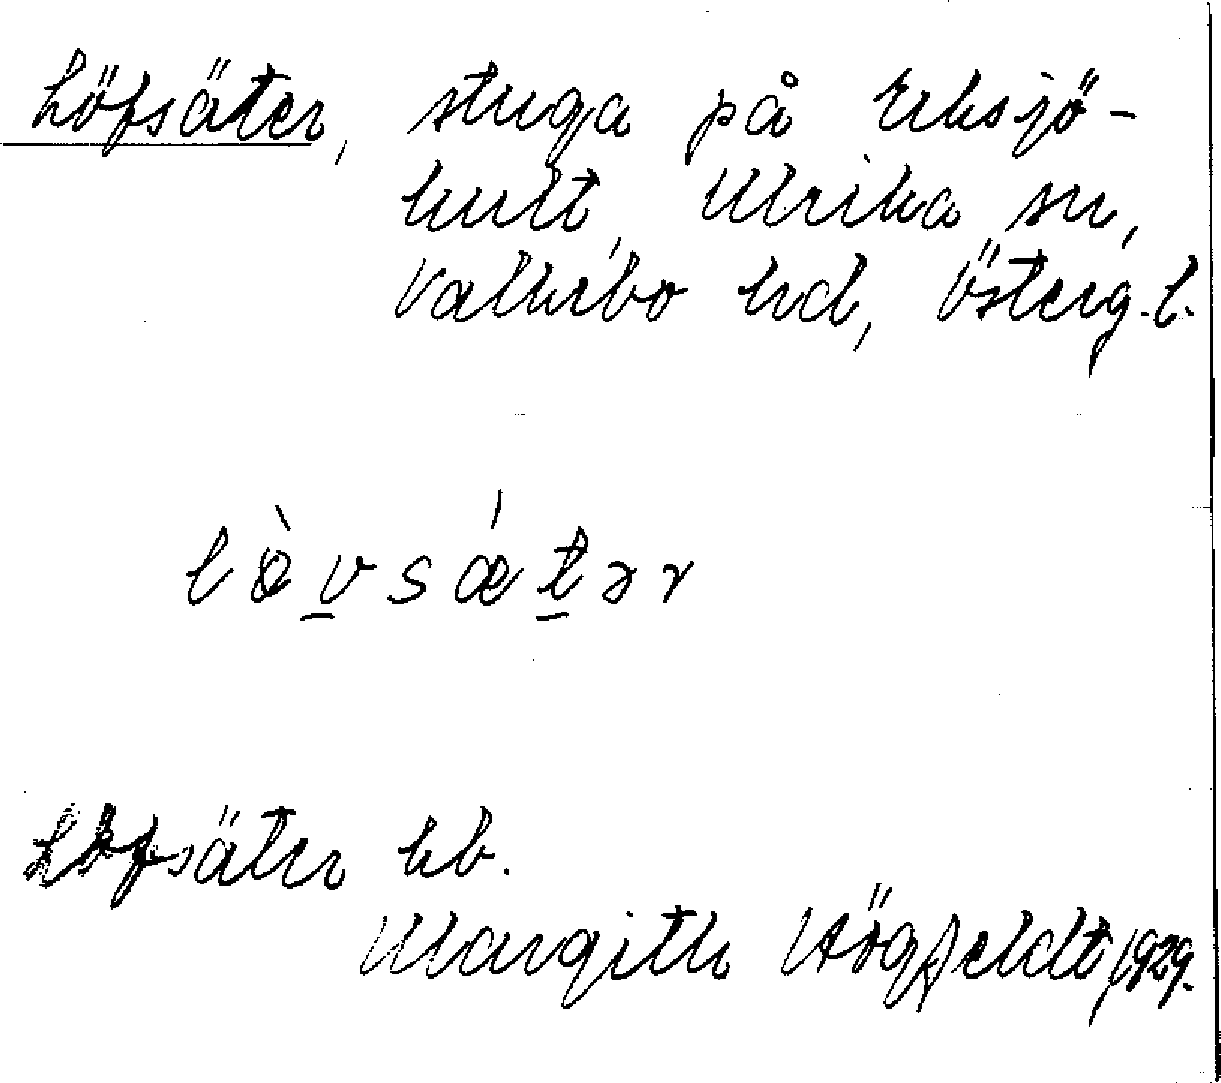 Löfsäter, stuga på Eksjö-
hult, Ulrika sn,
Valkebo hd, Österg. l.
lø̀v̠sǽt̠ər
Löfsäter kb.
Margith Högfeldt, 1929.